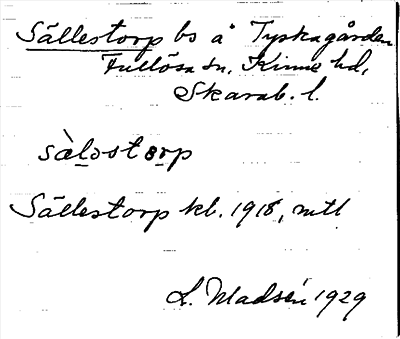 Sällestorp bs å Tyskagården
Fullösa sn. Kinne hd,
Skarab. l.
sàlostorp
Sällestorp kb. 1918, mtl
L. Madsén 1929